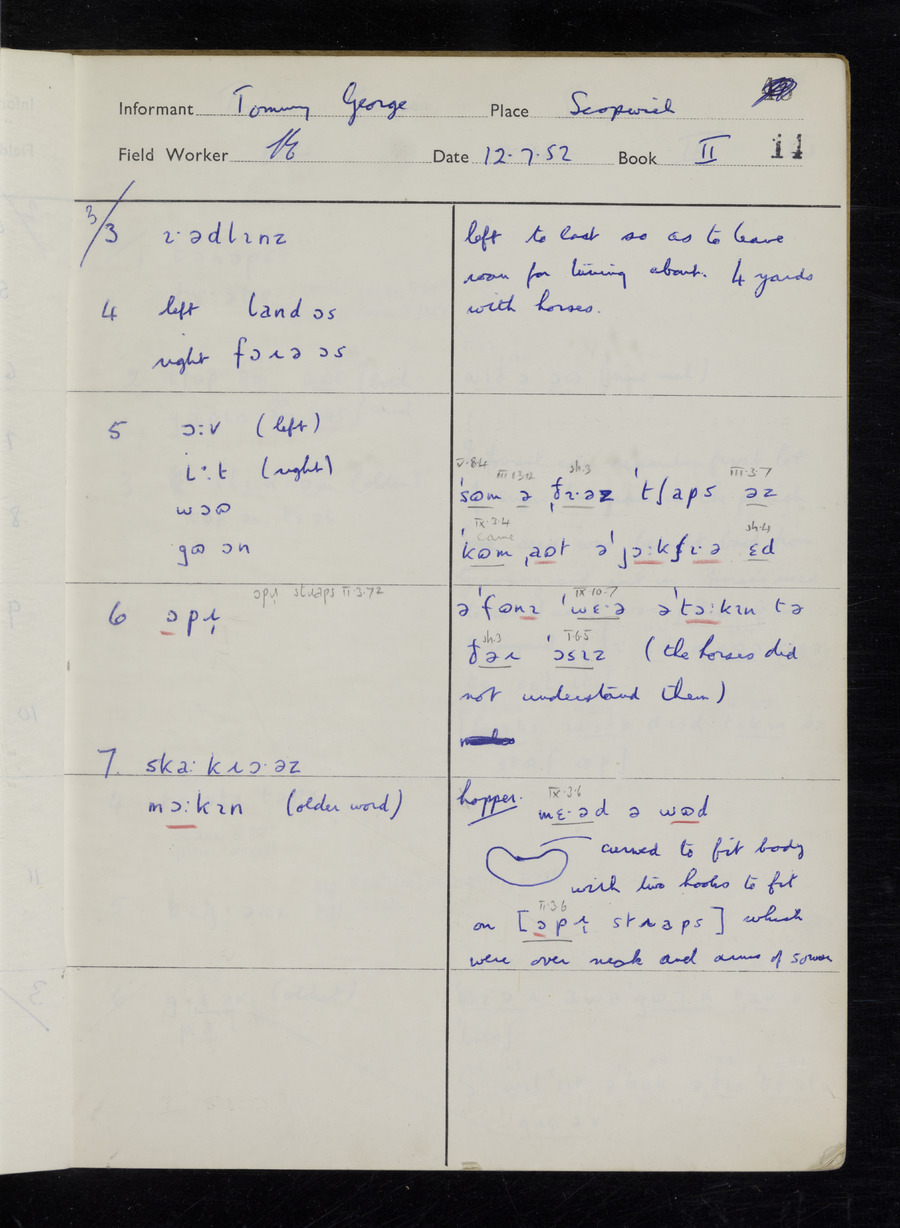 Informant Tommy George Place Scopwick
Field Worker Date 12.7.52 Book II 11
3/3 ɪ·ədlɪnz
4 left land ɔs
right fɔɹə ɔs
5 ɔ:v (left)
i:t (right)
wɔʊ
gʊ ɔn
6 ɔpɪ̨
ɔpɪ̨ stɹaps II.3.7
7. ska:kɹɔ·əz
mɔ:kɪn (older word)
left to last so as to leave
room for turning about. 4 yards
with horses.
V.8.4 III.13.12 sh.3 III.3.7
ˈsʊm ə ˌðɪ·əz ˈtʃaps əz
IX.3.4
came sh.4
ˈkʊm ˌaʊt əˈjɔ:kʃɪ·ə ɛd
IX.10.7
əˈfʊnɪ ˈwɛ·ə əˈtɔ:kɪn tə
sh.3 I.6.5
ðəɹ ˈɔsɪz (the horses did
not understand them)
hopper. IX.3.6
mɛ·əd ə wʊd
curved to fit body
with two hooks to fit
II.3.6
on [ɔpɪ̨ stɹaps] which
were over neck and arms of sower